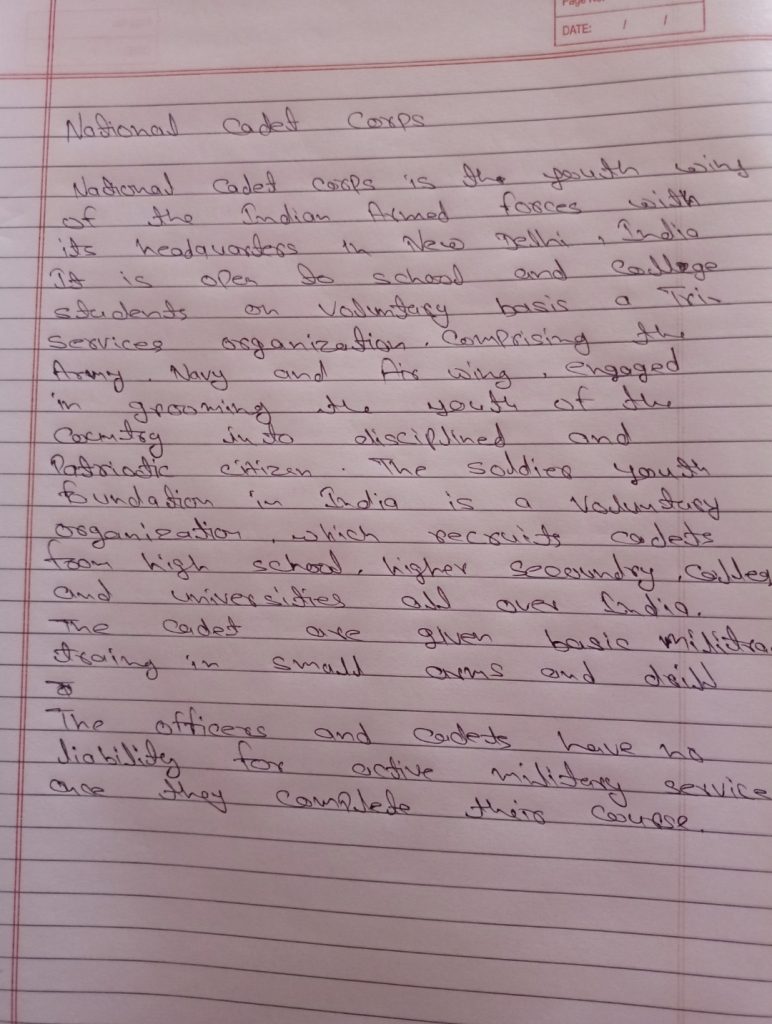 Page No.
DATE: / /
National Cadet Corps
National Cadet Corps is the youth wing
of the Indian Armed forces with
its headquarters in New Delhi, India
It is open to school and College
students on Voluntary basis a Tri-
Services organization. Comprising the
Army, Navy and Air wing, engaged
in grooming the youth of the
Country into disciplined and
Patriotic citizen. The soldier youth
foundation in India is a Voluntary
organization, which recruits cadets
from high school, higher Secoundry, Colleg
and universities all over India.
The Cadet are given basic militra
traing in small arms and drill
The officers and Cadets have no
liability for active military service
once they complete their Course.